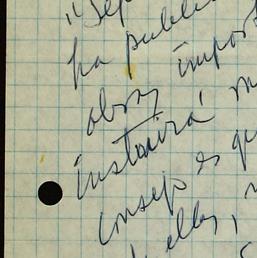 "Sep
ha publi
obra import
instaurá m
consejo es qu
ellas,